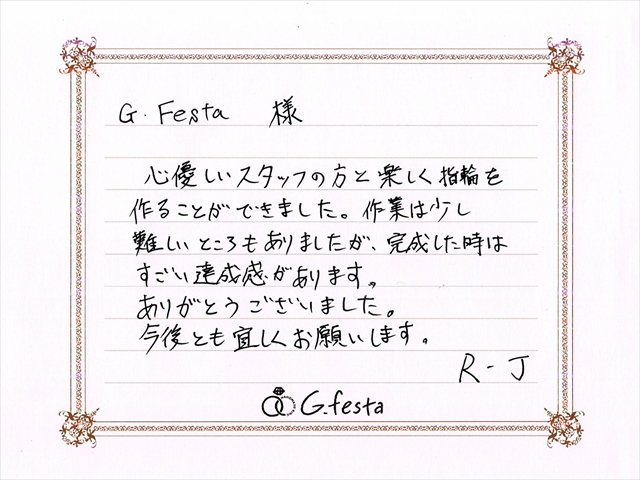 G. Festa 様
心優しいスタッフの方と楽しく指輪を
作ることができました。作業は少し
難しいところもありましたが、完成した時は
すごい達成感があります。
ありがとうございました。
今後とも宜しくお願いします。
R - J
G.festa